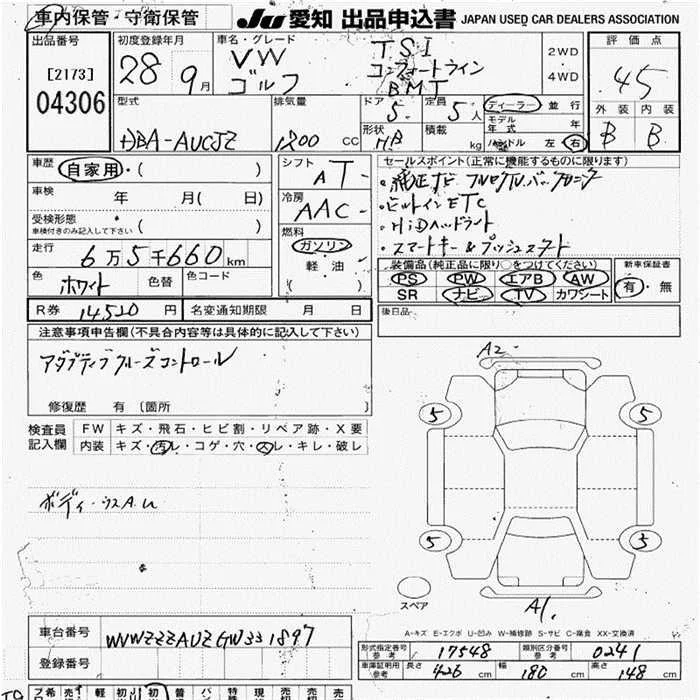 車内保管・守衛保管
JU 愛知 出品申込書 JAPAN USED CAR DEALERS ASSOCIATION
出品番号 初度登録年月 車名・グレード 評価点
[2173] 28 9月 VW TSI 2WD
04306 ゴルフ コンフォートライン 4WD 4.5
BMT
型式 排気量 ドア 定員 ディーラー 並行 外装 内装
DBA-AUCJZ 1200 CC 5 5人 モデル年式 年 B B
形状 HB 積載 kg ハンドル 左 右
車歴 自家用・( ) シフト AT- セールスポイント(正常に機能するものに限ります)
車検 年 月( 日) 冷房 AAC- ・純正ナビ フルセグTV.バックカメラ
受検形態 ・ビルトインETC
車検付きのみ記入して下さい ( ) 燃料 ・HiDヘッドライト
走行 6万5千660km ガソリン ・スマートキー&プッシュスタート
色 ホワイト 色替 色コード 軽油 装備品(純正品に限り○をつけてください) 新車保証書
( ) PS PW エアB AW 有・無
SR ナビ TV カワシート
R券 14520円 名変通知期限 月 日 後日品
注意事項申告欄(不具合内容等は具体的に記入して下さい)
アダプティブクルーズコントロール
修復歴 有 〔箇所 〕
検査員 FW キズ・飛石・ヒビ割・リペア跡・X要
記入欄 内装 キズ・汚レ・コゲ・穴・スレ・キレ・破レ
A2
5 5
ボディ・ウスA.U
5 5
スペア
A1.
A-キズ E-エクボ U-凹み W-補修跡 S-サビ C-腐食 XX-交換済
車台番号 WVWZZZAUZGW331897
型式指定番号 参考 17548 類別区分番号 参考 0241
登録番号
車庫証明用 参考 長さ 426 cm 幅 180 cm 高さ 148 cm